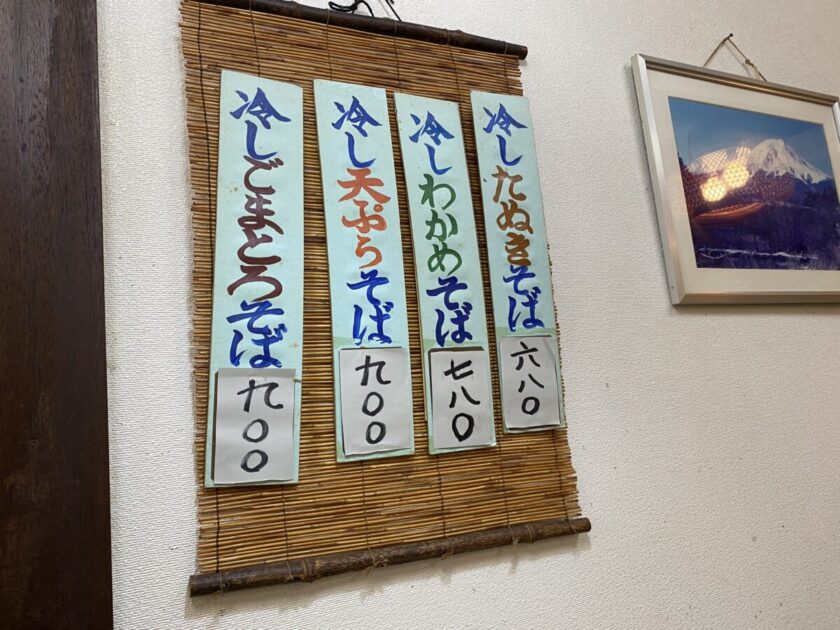 冷したぬきそば
六八〇
冷しわかめそば
七八〇
冷し天ぷらそば
九〇〇
冷しごまとろそば
九〇〇